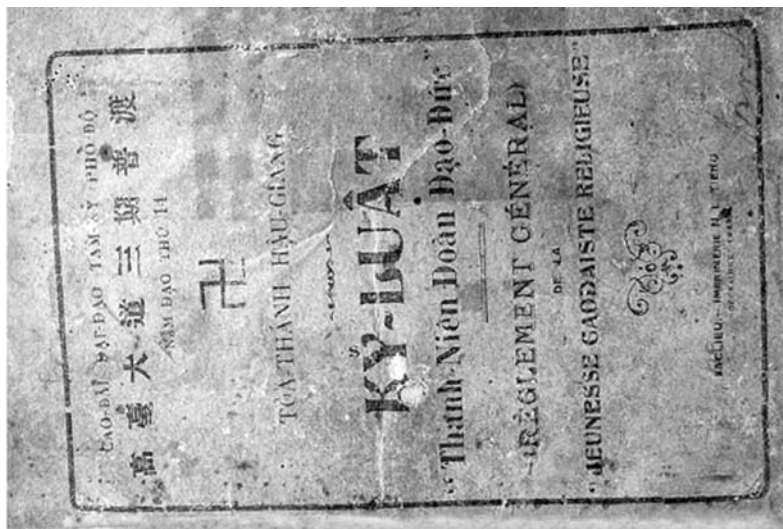 CAO-ĐÀI ĐẠI-ĐẠO TAM KỲ PHỔ-ĐỘ
高臺大道三期普渡
NĂM ĐẠO THỨ 14
卍
TÒA-THÁNH HẬU-GIANG
KỶ-LUẬT
"Thanh-Niên Đoàn Đạo-Đức"
(RÈGLEMENT GÉNÉRAL)
DE LA
"JEUNESSE CAODAISTE RELIGIEUSE"
BACLIEU.- IMPRIMERIE